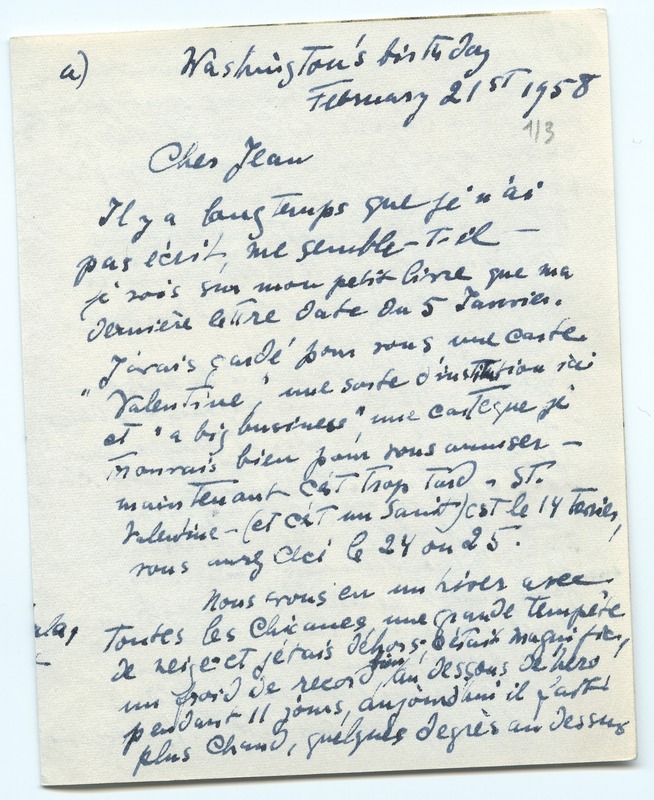 a) Washington's birthday
February 21ST 1958
1/3
Cher Jean
Il y a longtemps que je n'ai
pas écrit, me semble-t-il —
je vois sur mon petit livre que ma
dernière lettre date du 5 Janvier.
J'avais gardé pour vous une carte
"Valentine", une sorte d'institution ici
et "a big business", une carte que je
trouvais bien pour vous amuser —
maintenant c'est trop tard - ST.
Valentine - (et c'est un Saint) est le 14 fevrier,
vous aurez ceci le 24 ou 25.
Nous avons eu un hiver avec
toutes les chicanes, une grande tempête
de neige et j'étais déhors, c'était magnifique,
un froid de record, au dessous de zero
pendant 11 jours, aujourd'hui il fait
plus chaud, quelques degrès au dessus